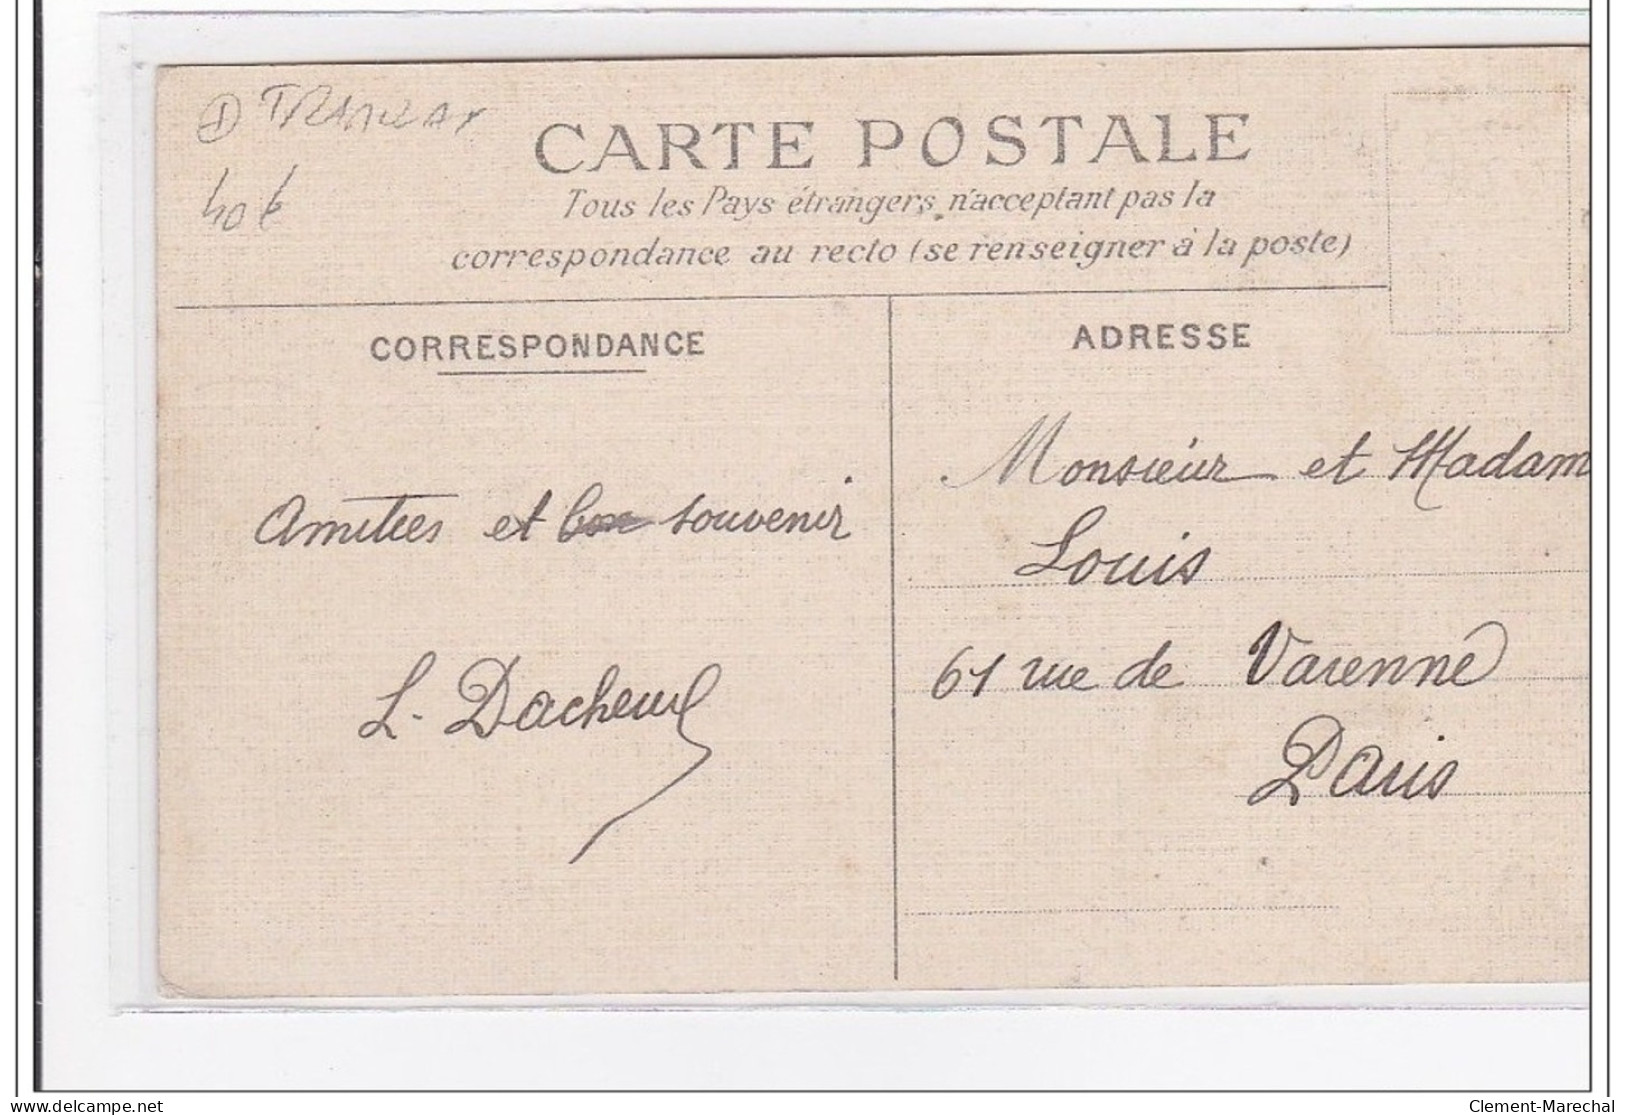 40€
CARTE POSTALE
Tous les Pays étrangers n'acceptant pas la
correspondance au recto (se renseigner à la poste)
CORRESPONDANCE
ADRESSE
Amitiées et bon souvenir
L. Dacheux
Monsieur et Madam
Louis
61 rue de Varenne
Paris
delcampe.net
Clement-Marechal